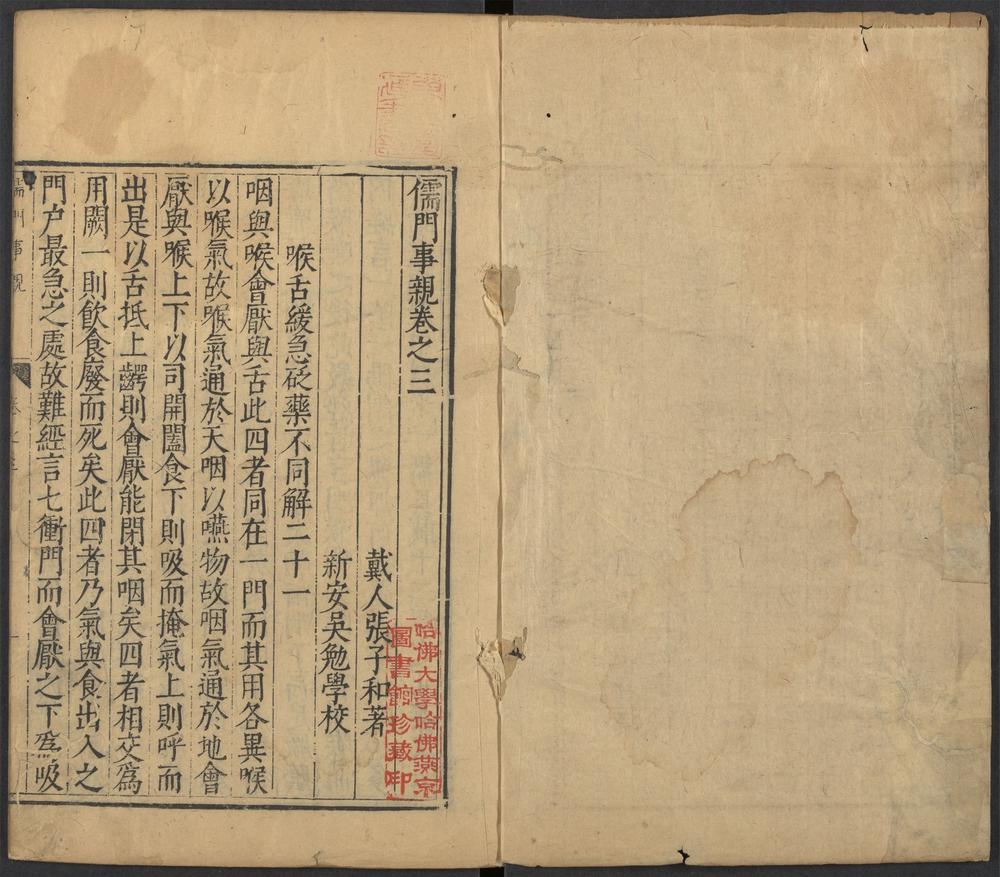 儒門事親卷之三
戴人張子和著
新安吳勉學校
喉舌緩急砭藥不同解二十一
咽與喉會厭與舌此四者同在一門而其用各異喉
以喉氣故喉氣通於天咽以嚥物故咽氣通於地會
厭與喉上下以司開闔食下則吸而掩氣上則呼而
出是以舌抵上齶則會厭能閉其咽矣四者相交爲
用闕一則飲食廢而死矣此四者乃氣與食出入之
門户最急之處故難經言七衝門而會厭之下爲吸
儒門事親
卷之三
哈佛大學哈佛燕京
圖書館珍藏印